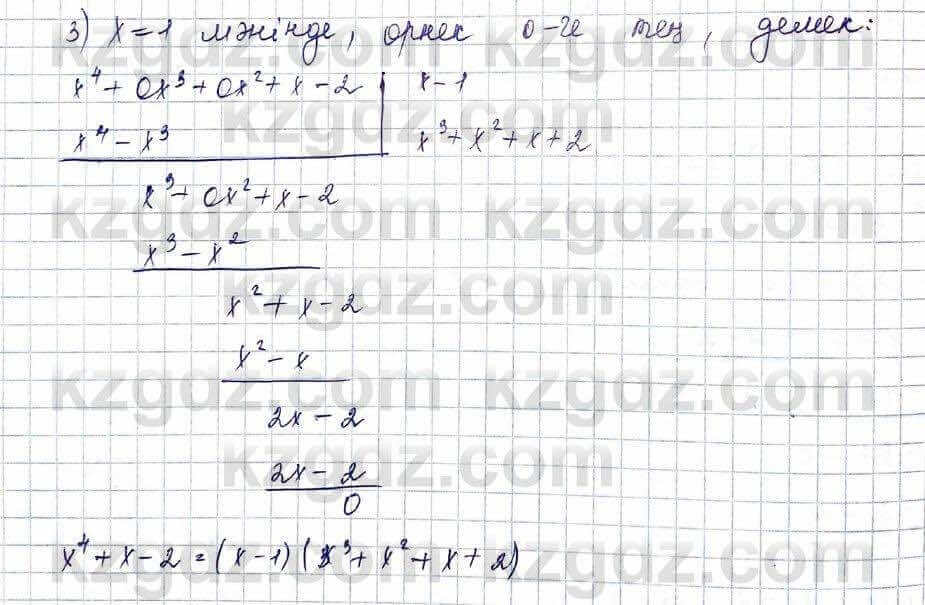 3) x=1 мәнінде, өрнек 0-ге тең, демек:
x⁴+0x³+0x²+x-2 | x-1
x⁴-x³ | x³+x²+x+2
x³+0x²+x-2
x³-x²
x²+x-2
x²-x
2x-2
2x-2
0
x⁴+x-2=(x-1)(x³+x²+x+2)
kzgdz.com
kzgdz.com kzgdz.com
kzgdz.com
kzgdz.com kzgdz.com
kzgdz.com
kzgdz.com kzgdz.com